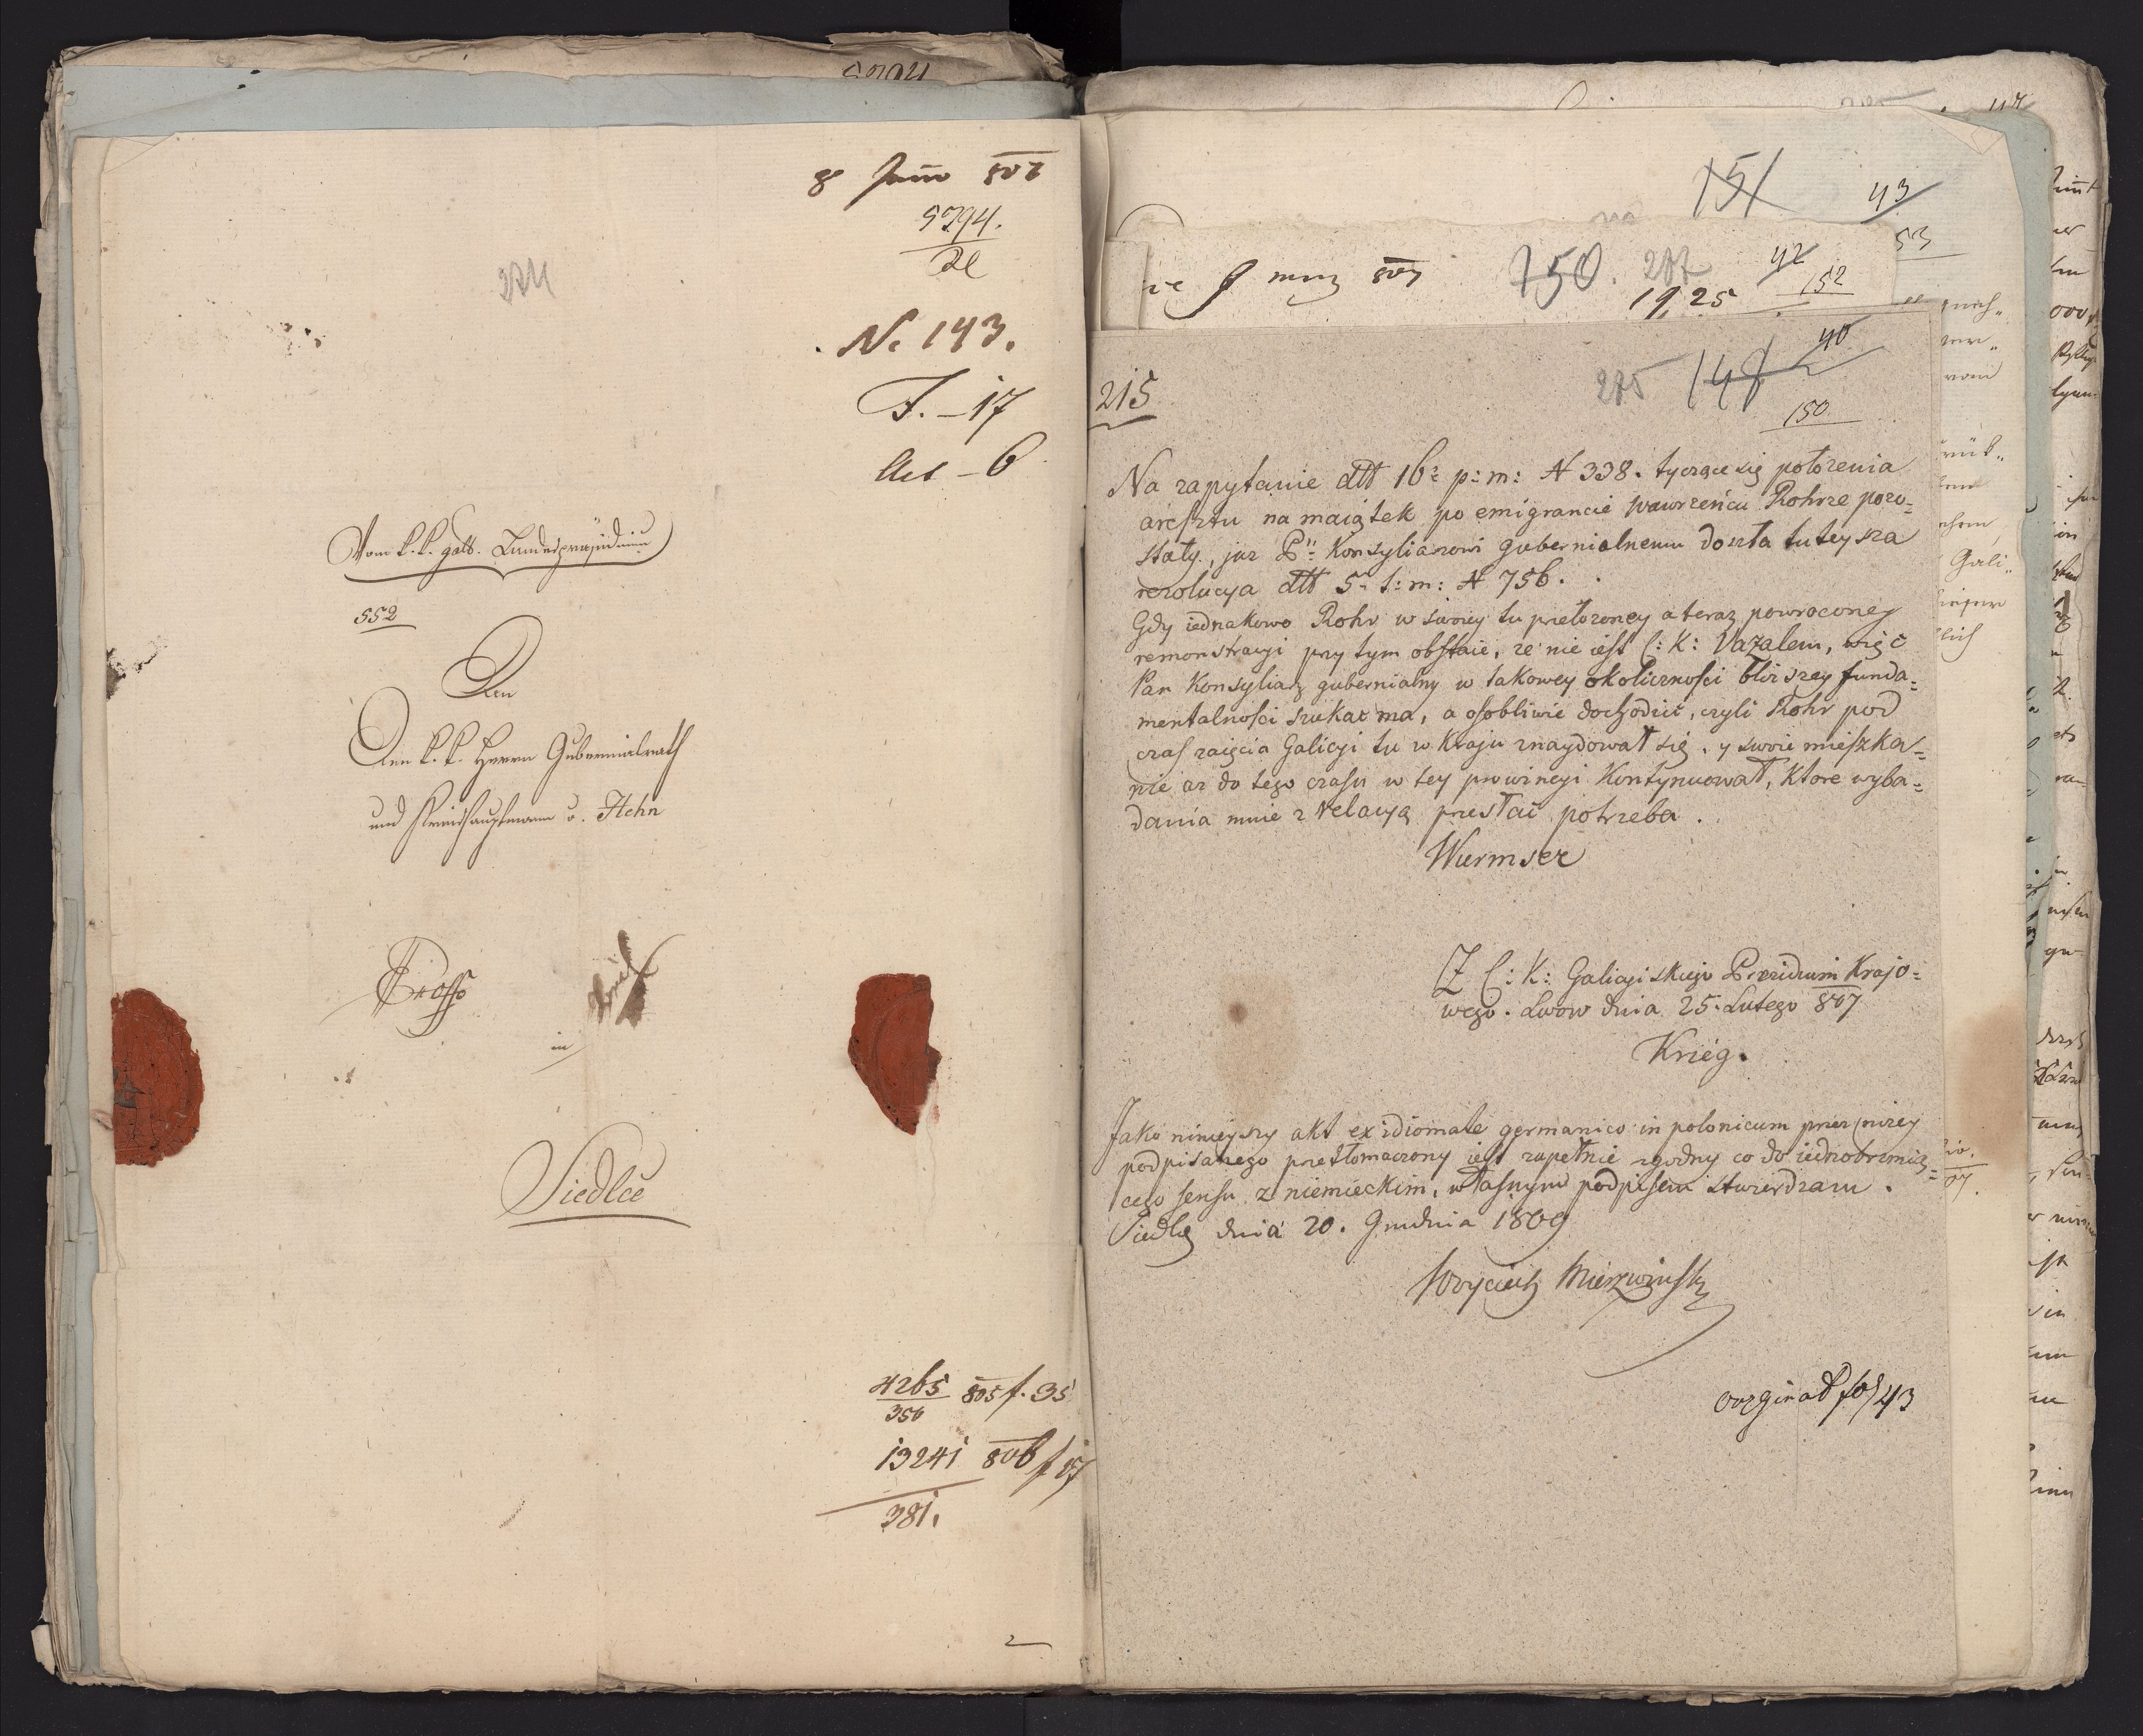 8 Junio 807
5794.
N. 143.
F. – 17
Act – 6
Vom k. k. gal. Landespräsidium
552
An
Den k. k. Herrn Gubernialrath
und Kreishauptmann v. Hehn
Ex offo
in
Siedlce
4265 805 f. 35
356
13241 806 f 17
381.
151 43
53
150. 287 42
19,25 152
807
40
285 148
150
215
Na zapytanie dtt 16: p: m: N 338. tyczące się położenia
aresztu na maiątek po emigrancie Wawrzeńcu Rohrze pozo=
stały, juz P: Konsyliarowi gubernialnemu doszła tuteysza
rezolucya dtt 5. t: m: N 756.
Gdy iednakowo Rohr w swoiey tu przełozoney a teraz powroconey
remonstracyi przy tym obstaie, ze nie iest C: K: Vazalem, więc
Pan Konsyliarz gubernialny w takowey okoliczności bliszey funda=
mentalności szukać ma, a osobliwie dochodzić, czyli Rohr pod
czas zaięcia Galicyi tu w Kraju znaydował się, y swoie mieszka=
nie az do tego czasu w tey prowincyi Kontynuował, Ktore wyba=
dania mnie z relacyą przesłać potrzeba.
Wurmser
Z C: K: Galicyiskiego Prezidium Krajo=
wego. Lwow dnia 25. Lutego 807
Krieg.
Jako ninieyszy akt ex idiomate germanico in polonicum przez nizey
podpisanego przetłomaczony iest zupełnie zgodny co do iednobrzmią=
cego sensu z niemieckim, własnym podpisem stwierdzam.
Siedlce dnia 20. Grudnia 1809
Woyciech Mierzwinski
orzginał fol 43